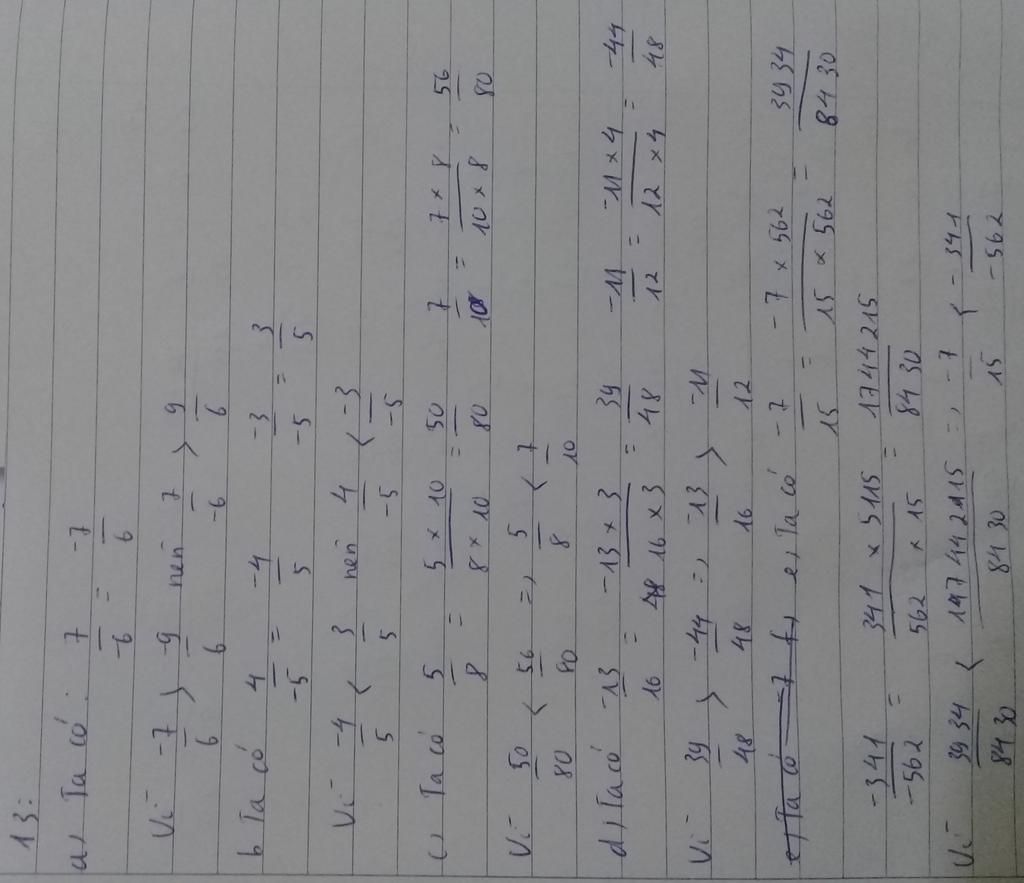 13:
a, Ta có: 7/-6 = -7/6
Vì -7/6 > -9/6 nên 7/-6 > 9/6
b Ta có 4/-5 = -4/5 -3/-5 = 3/5
Vì -4/5 < 3/5 nên 4/-5 < -3/-5
c, Ta có 5/8 = 5 × 10/8 × 10 = 50/80 7/10 = 7 × 8/10 × 8 = 56/80
Vì 50/80 < 56/80 =, 5/8 < 7/10
d, Ta có -13/16 = -13 × 3/16 × 3 = 39/48 -11/12 = -11 × 4/12 × 4 = -44/48
Vì 39/48 > -44/48 =, -13/16 > -11/12
e, Ta có -7 f, e, Ta có -7/15 = -7 × 562/15 × 562 = 3934/8430
-341/-562 = 341 × 5115/562 × 15 = 1744215/8430
Vì 3934/8430 < /8430 =, -7/15 < -341/-562